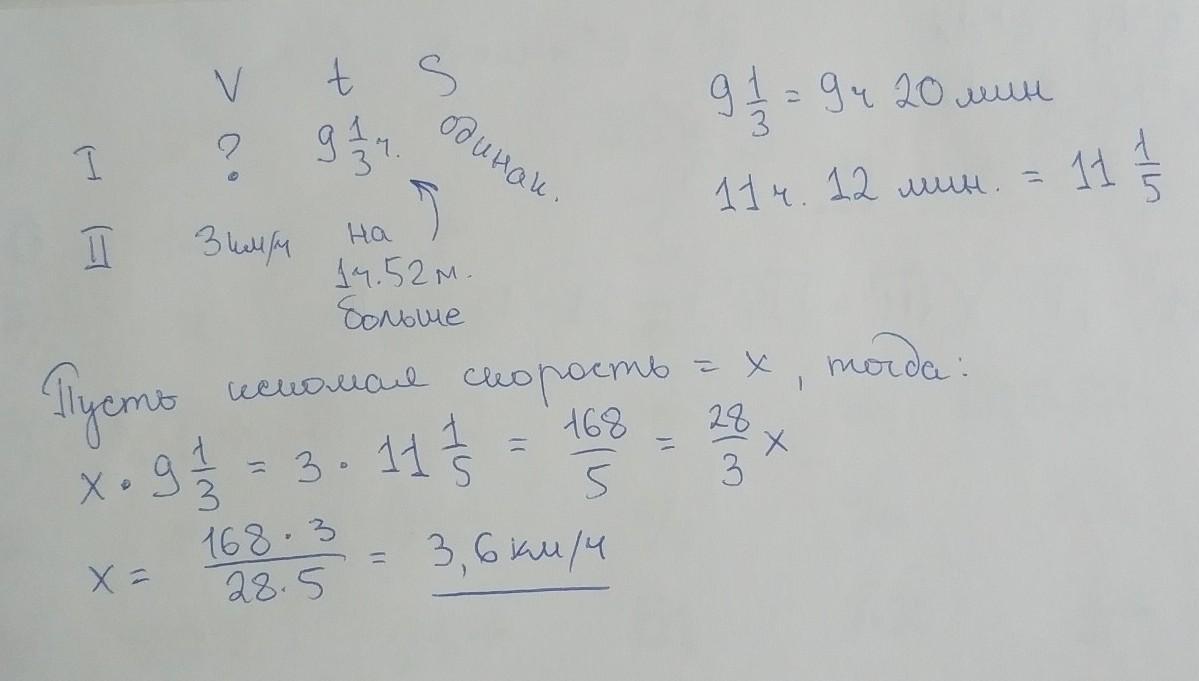 V t S
I ? 9 1/3 ч. одинак.
II 3 км/ч на
1ч.52м.
больше
9 1/3 = 9ч 20 мин
11ч. 12 мин. = 11 1/5
Пусть искомая скорость = x, тогда:
x · 9 1/3 = 3 · 11 1/5 = 168/5 = 28/3 x
x = 168 · 3 / 28 · 5 = 3,6 км/ч